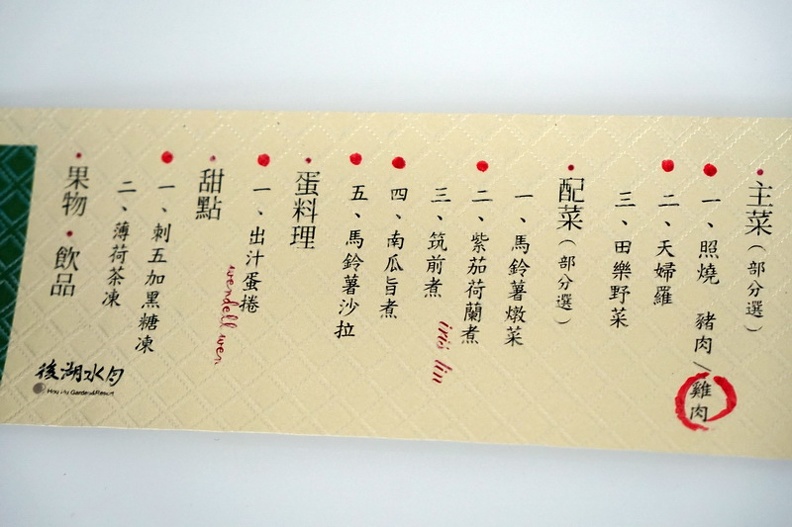 主菜(部分選)
一、照燒 豬肉/雞肉
二、天婦羅
三、田樂野菜
配菜(部分選)
一、馬鈴薯燉菜
二、紫茄荷蘭煮
三、筑前煮
iris liu
四、南瓜旨煮
五、馬鈴薯沙拉
蛋料理
一、出汁蛋捲
wendell wen
甜點
一、刺五加黑糖凍
二、薄荷茶凍
果物・飲品
後湖水月
Hou Hu Garden&Resort